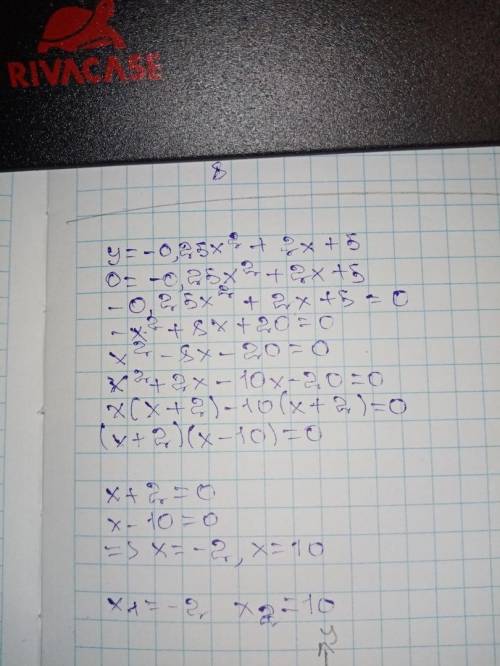 RIVACASE
8
y=-0,25x²+2x+5
0=-0,25x²+2x+5
-0,25x²+2x+5=0
-x²+8x+20=0
x²-8x-20=0
x²+2x-10x-20=0
x(x+2)-10(x+2)=0
(x+2)(x-10)=0
x+2=0
x-10=0
=> x=-2, x=10
x₁=-2 x₂=10